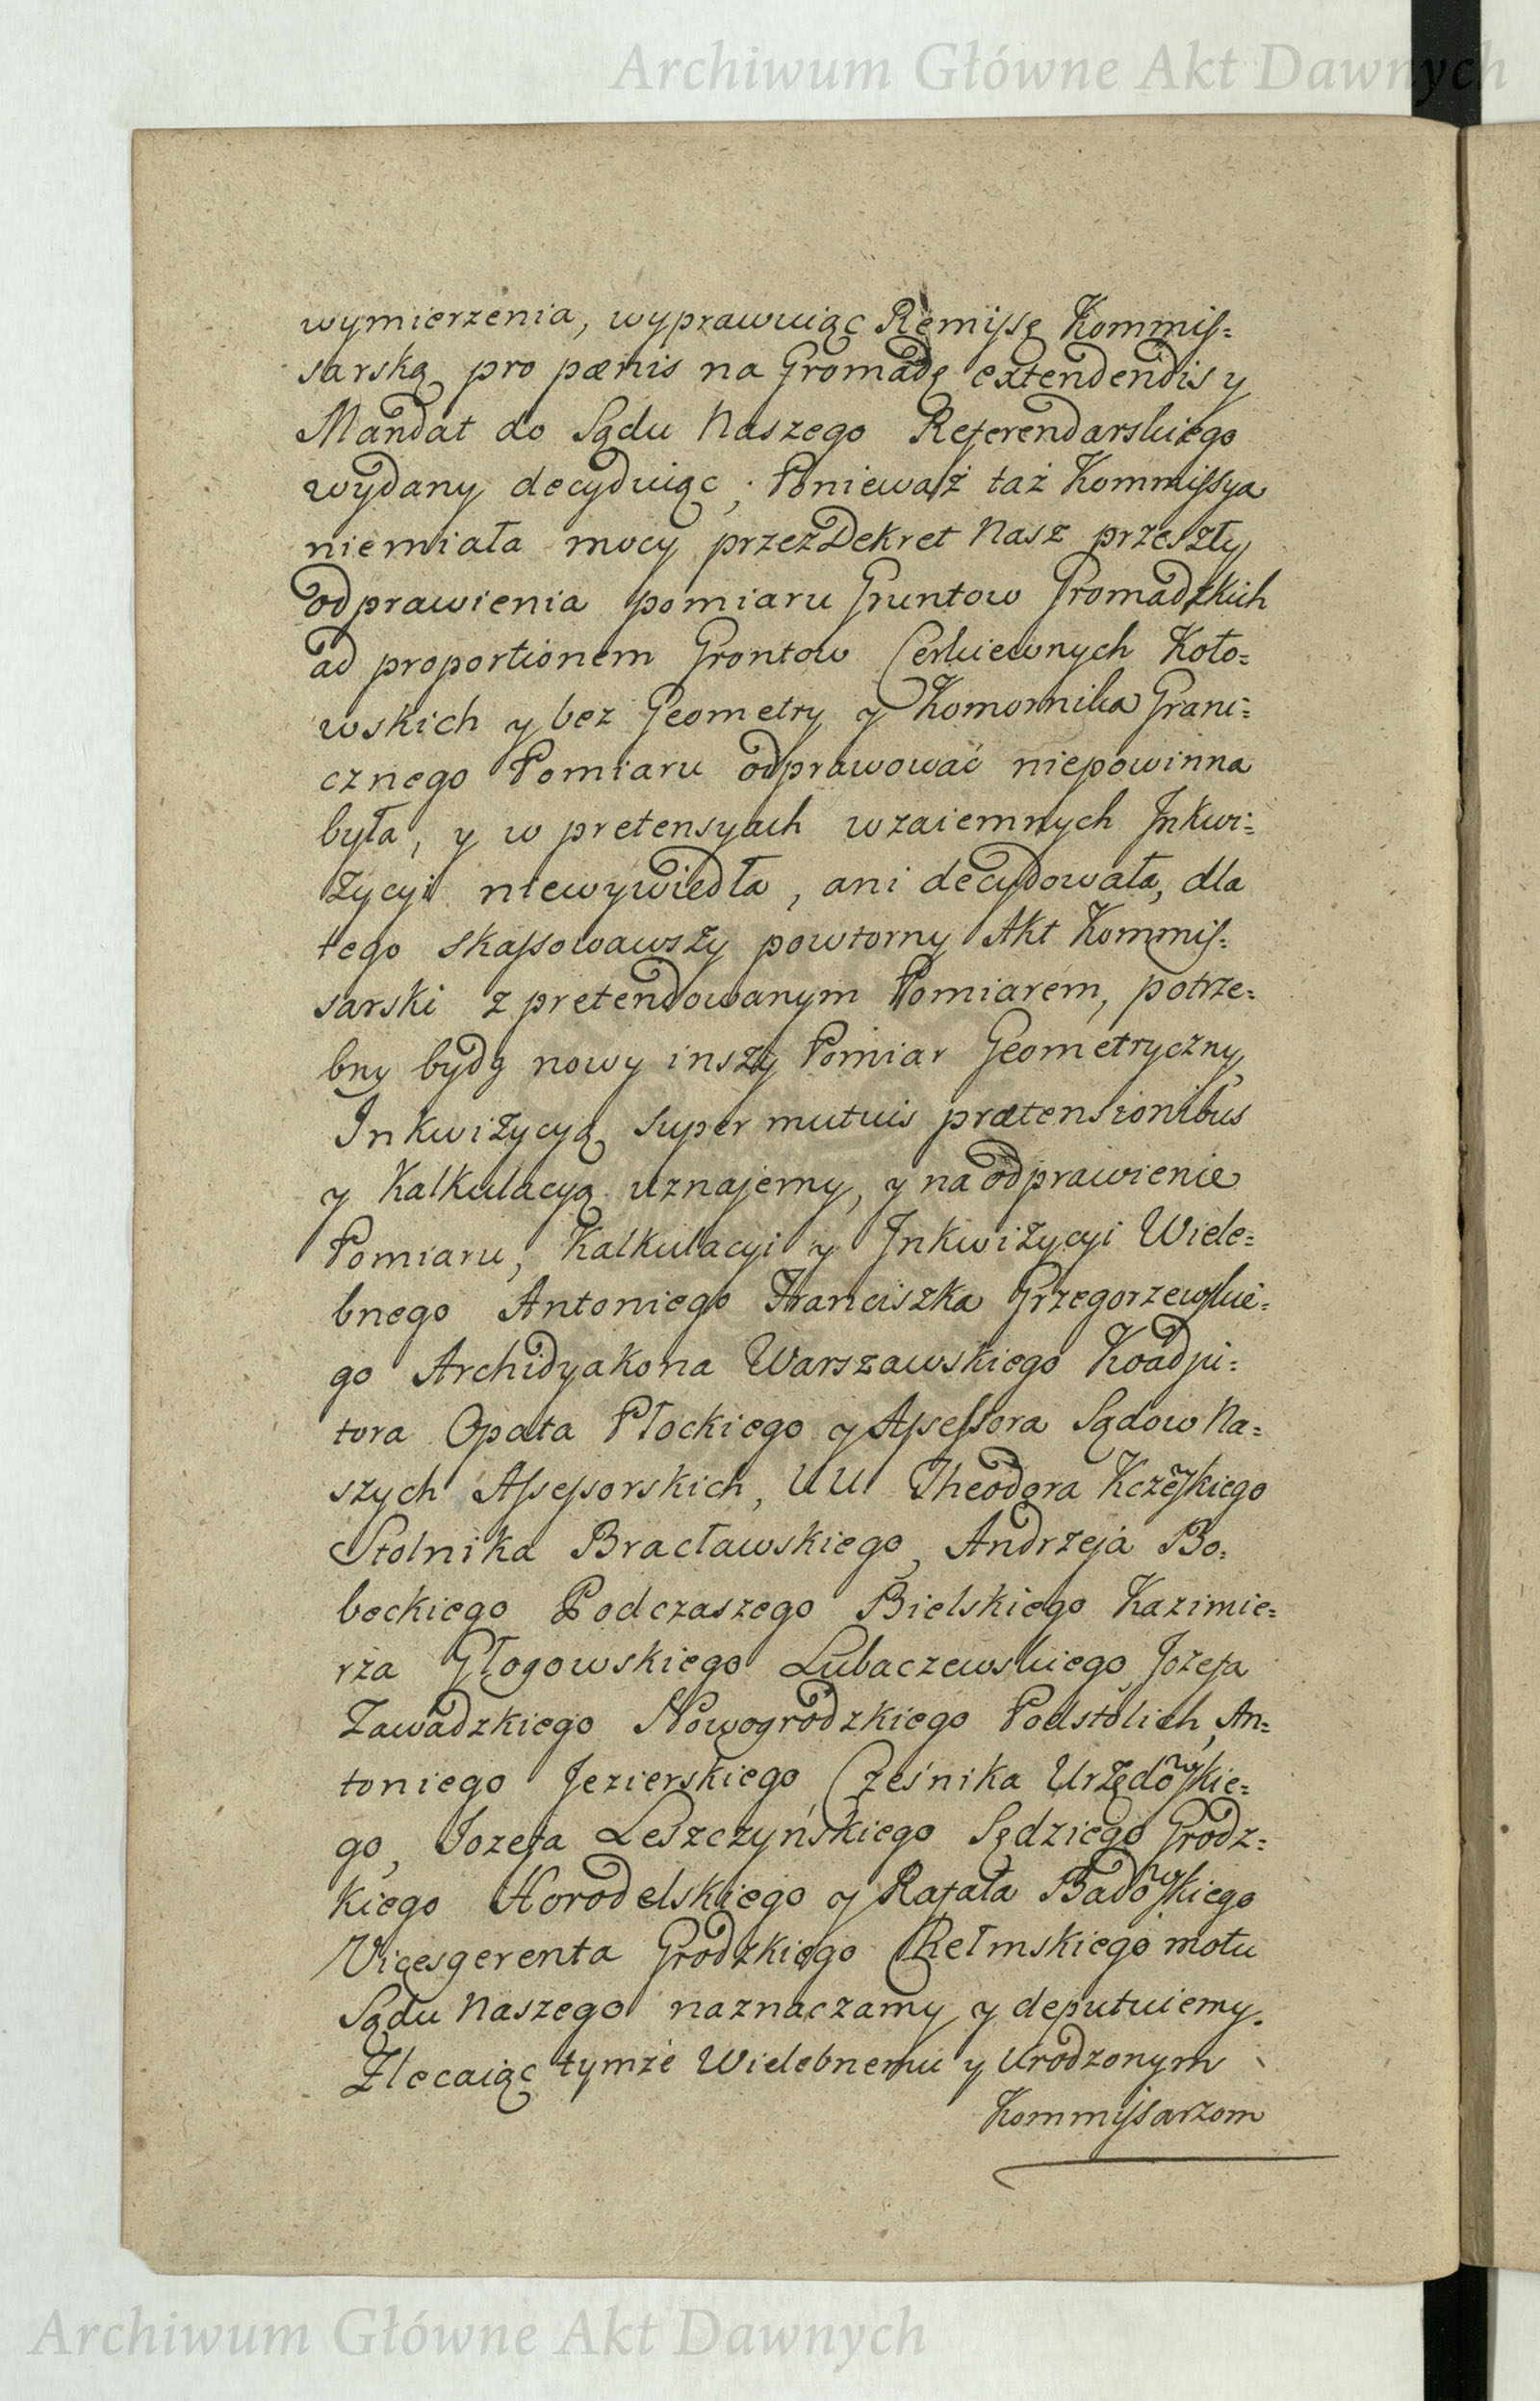 Archiwum Główne Akt Dawnych
wymierzenia, wyprawuiąc Remissę Kommis=
sarską pro pænis na Gromadę extendendis y
Mandat do Sądu Naszego Referendarskiego
wydany decyduiąc; Poniewasz taż Kommissya
niemiała mocy przez Dekret Nasz przeszły
odprawienia pomiaru Gruntow Gromadzkich
ad proportionem Grontow Cerkiewnych Koło=
wskich y bez Geometry y Komornika Grani=
cznego Pomiaru odprawować niepowinna
była, y w pretensyach wzaiemnych Inkwi=
zycyi niewywiedła, ani decydowała, dla
tego skassowawszy powtorny Akt Kommis=
sarski z pretendowanym Pomiarem, potrze=
bny bydź nowy inszy Pomiar Geometryczny,
Inkwizycyą super mutuis prætensionibus
y Kalkulacyą uznajemy, y na odprawienie
Pomiaru, Kalkulacyi y Inkwizycyi Wiele=
bnego Antoniego Franciszka Grzegorzewskie=
go Archidyakona Warszawskiego Koadju=
tora Opata Płockiego y Assessora Sądow Na=
szych Assessorskich, UU Theodora Kczewskiego
Stolnika Bracławskiego, Andrzeja Bo=
beckiego Podczaszego Bielskiego Kazimie=
rza Głogowskiego Lubaczewskiego, Jozefa
Zawadzkiego Nowogrodzkiego Podstolich, An=
toniego Jezierskiego, Cześnika Urzędowskie=
go, Jozefa Leszczyńskiego Sędziego Grodz=
kiego Horodelskiego y Rafała Badowskiego
Vicesgerenta Grodzkiego Chełmskiego motu
Sądu Naszego naznaczamy y deputuiemy.
Zlecaiąc tymże Wielebnemu y Urodzonym
Kommissarzom
Archiwum Główne Akt Dawnych